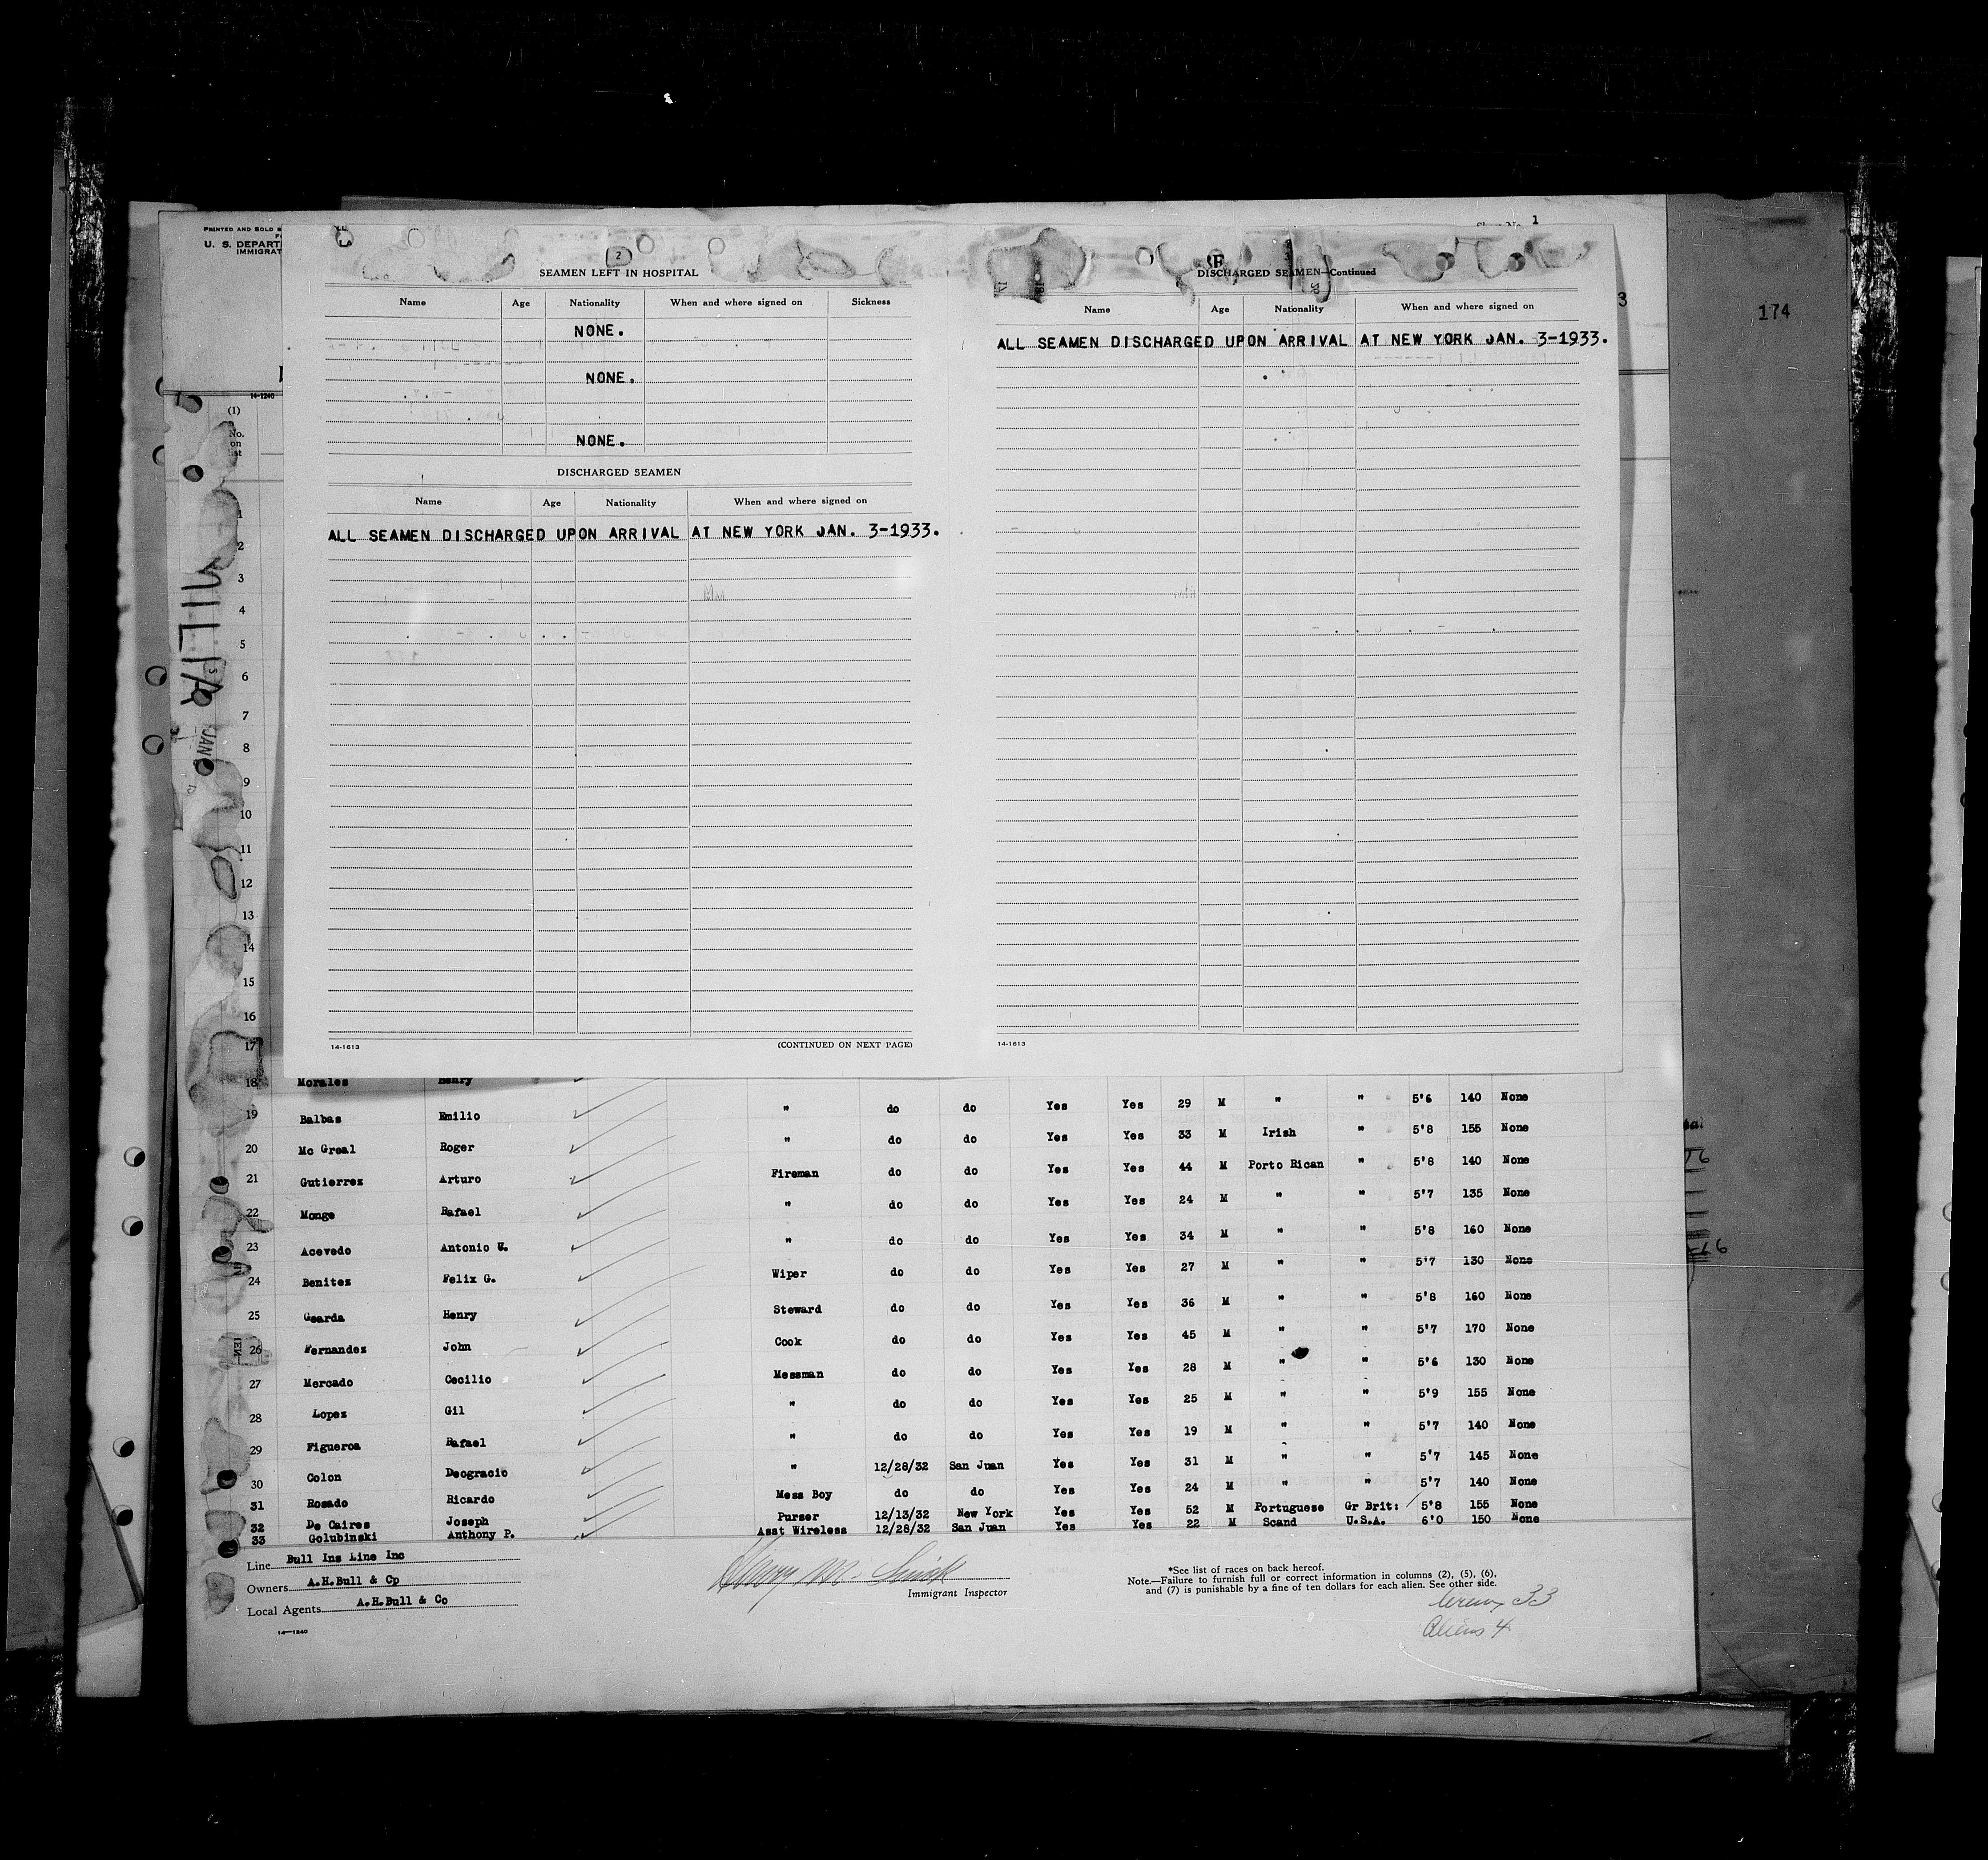 PRINTED AND SOLD
U. S. DEPART
IMMIGRAT
14-1240
(1)
No.
on
list
1
174
2
SEAMEN LEFT IN HOSPITAL
Name Age Nationality When and where signed on Sickness
NONE.
NONE.
NONE.
DISCHARGED SEAMEN
Name Age Nationality When and where signed on
ALL SEAMEN DISCHARGED UPON ARRIVAL AT NEW YORK JAN. 3-1933.
14-1613 (CONTINUED ON NEXT PAGE)
3
DISCHARGED SEAMEN—Continued
Name Age Nationality When and where signed on
ALL SEAMEN DISCHARGED UPON ARRIVAL AT NEW YORK JAN. 3-1933.
14-1613
1
2
3
4
5
6
7
8
9
10
11
12
13
14
15
16
17
18 Morales Henry
19 Balbas Emilio " do do Yes Yes 29 M " " 5'6 140 None
20 Mc Greal Roger " do do Yes Yes 33 M Irish " 5'8 155 None
21 Gutierrez Arturo Fireman do do Yes Yes 44 M Porto Rican " 5'8 140 None
22 Monge Rafael " do do Yes Yes 24 M " " 5'7 135 None
23 Acevedo Antonio U. " do do Yes Yes 34 M " " 5'8 160 None
24 Benitez Felix G. Wiper do do Yes Yes 27 M " " 5'7 130 None
25 Gearda Henry Steward do do Yes Yes 36 M " " 5'8 160 None
26 Fernandez John Cook do do Yes Yes 45 M " " 5'7 170 None
27 Mercado Cecilio Messman do do Yes Yes 28 M " " 5'6 130 None
28 Lopez Gil " do do Yes Yes 25 M " " 5'9 155 None
29 Figueroa Rafael " do do Yes Yes 19 M " " 5'7 140 None
30 Colon Deogracio " 12/28/32 San Juan Yes Yes 31 M " " 5'7 145 None
31 Rosado Ricardo Mess Boy do do Yes Yes 24 M " " 5'7 140 None
32 De Caires Joseph Purser 12/13/32 New York Yes Yes 52 M Portuguese Gr Brit: 5'8 155 None
33 Golubinski Anthony P. Asst Wireless 12/28/32 San Juan Yes Yes 22 M Scand U.S.A. 6'0 150 None
Line Bull Ins Line Inc
Owners A.H.Bull & Cp
Local Agents A.H.Bull & Co
14—1240
Immigrant Inspector
*See list of races on back hereof.
Note.—Failure to furnish full or correct information in columns (2), (5), (6),
and (7) is punishable by a fine of ten dollars for each alien. See other side.
Crew 33
Aliens 4